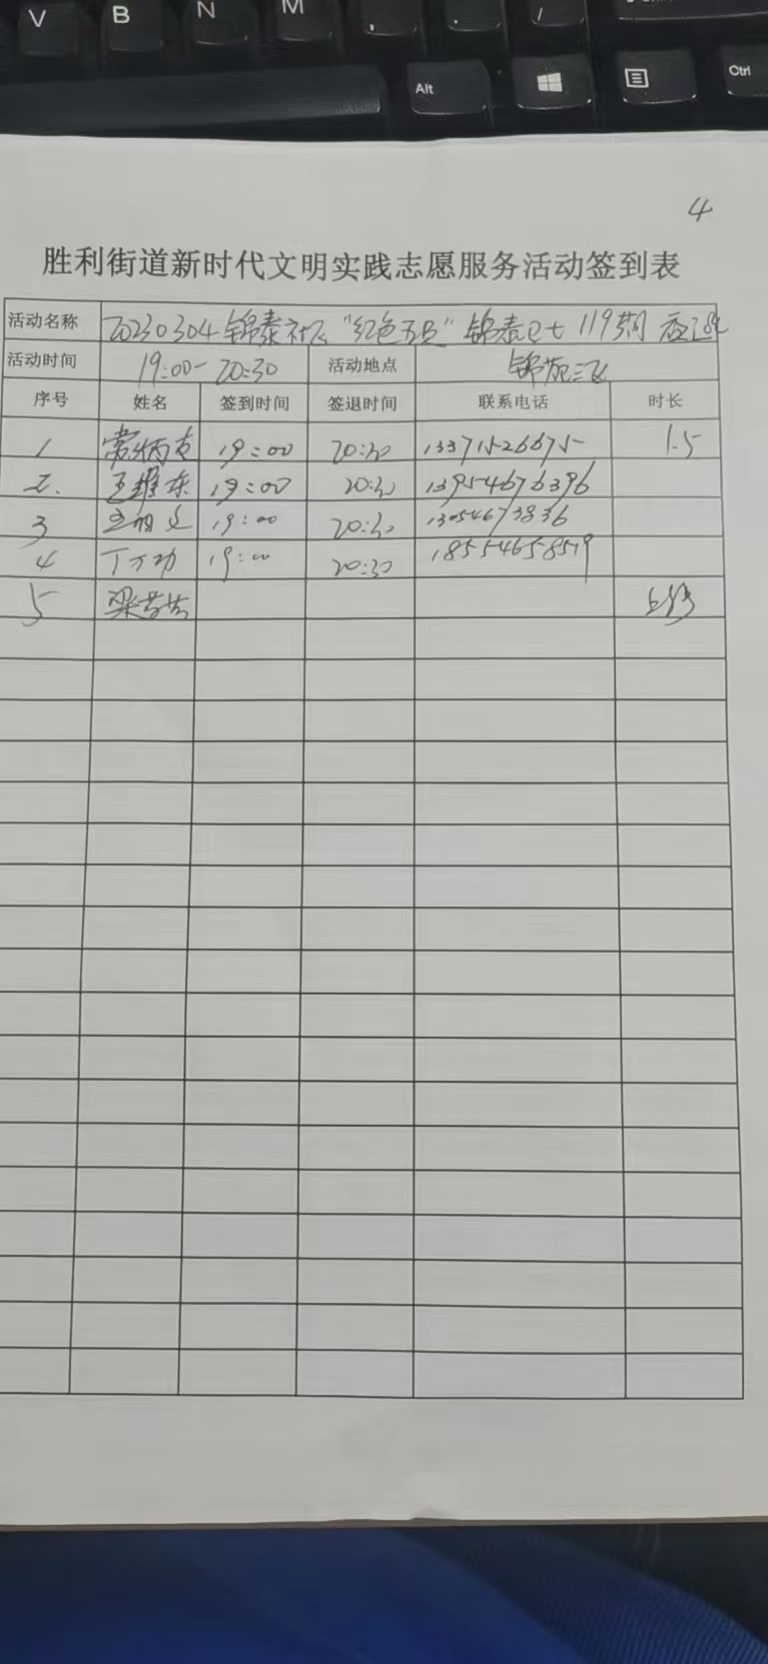 V B N M , . /
Alt Ctrl
4
胜利街道新时代文明实践志愿服务活动签到表
活动名称 20230304 锦泰社区 "红色 " 锦 119期
活动时间 19:00-20:30 活动地点 锦苑三
序号 姓名 签到时间 签退时间 联系电话 时长
1 常炳 19:00 20:30 13371526675 1.5
2. 王维东 19:00 20:30 13954676396
3 19:00 20:30 13054673836
4 丁万功 19:00 20:30 18554658519
5 梁芳芳